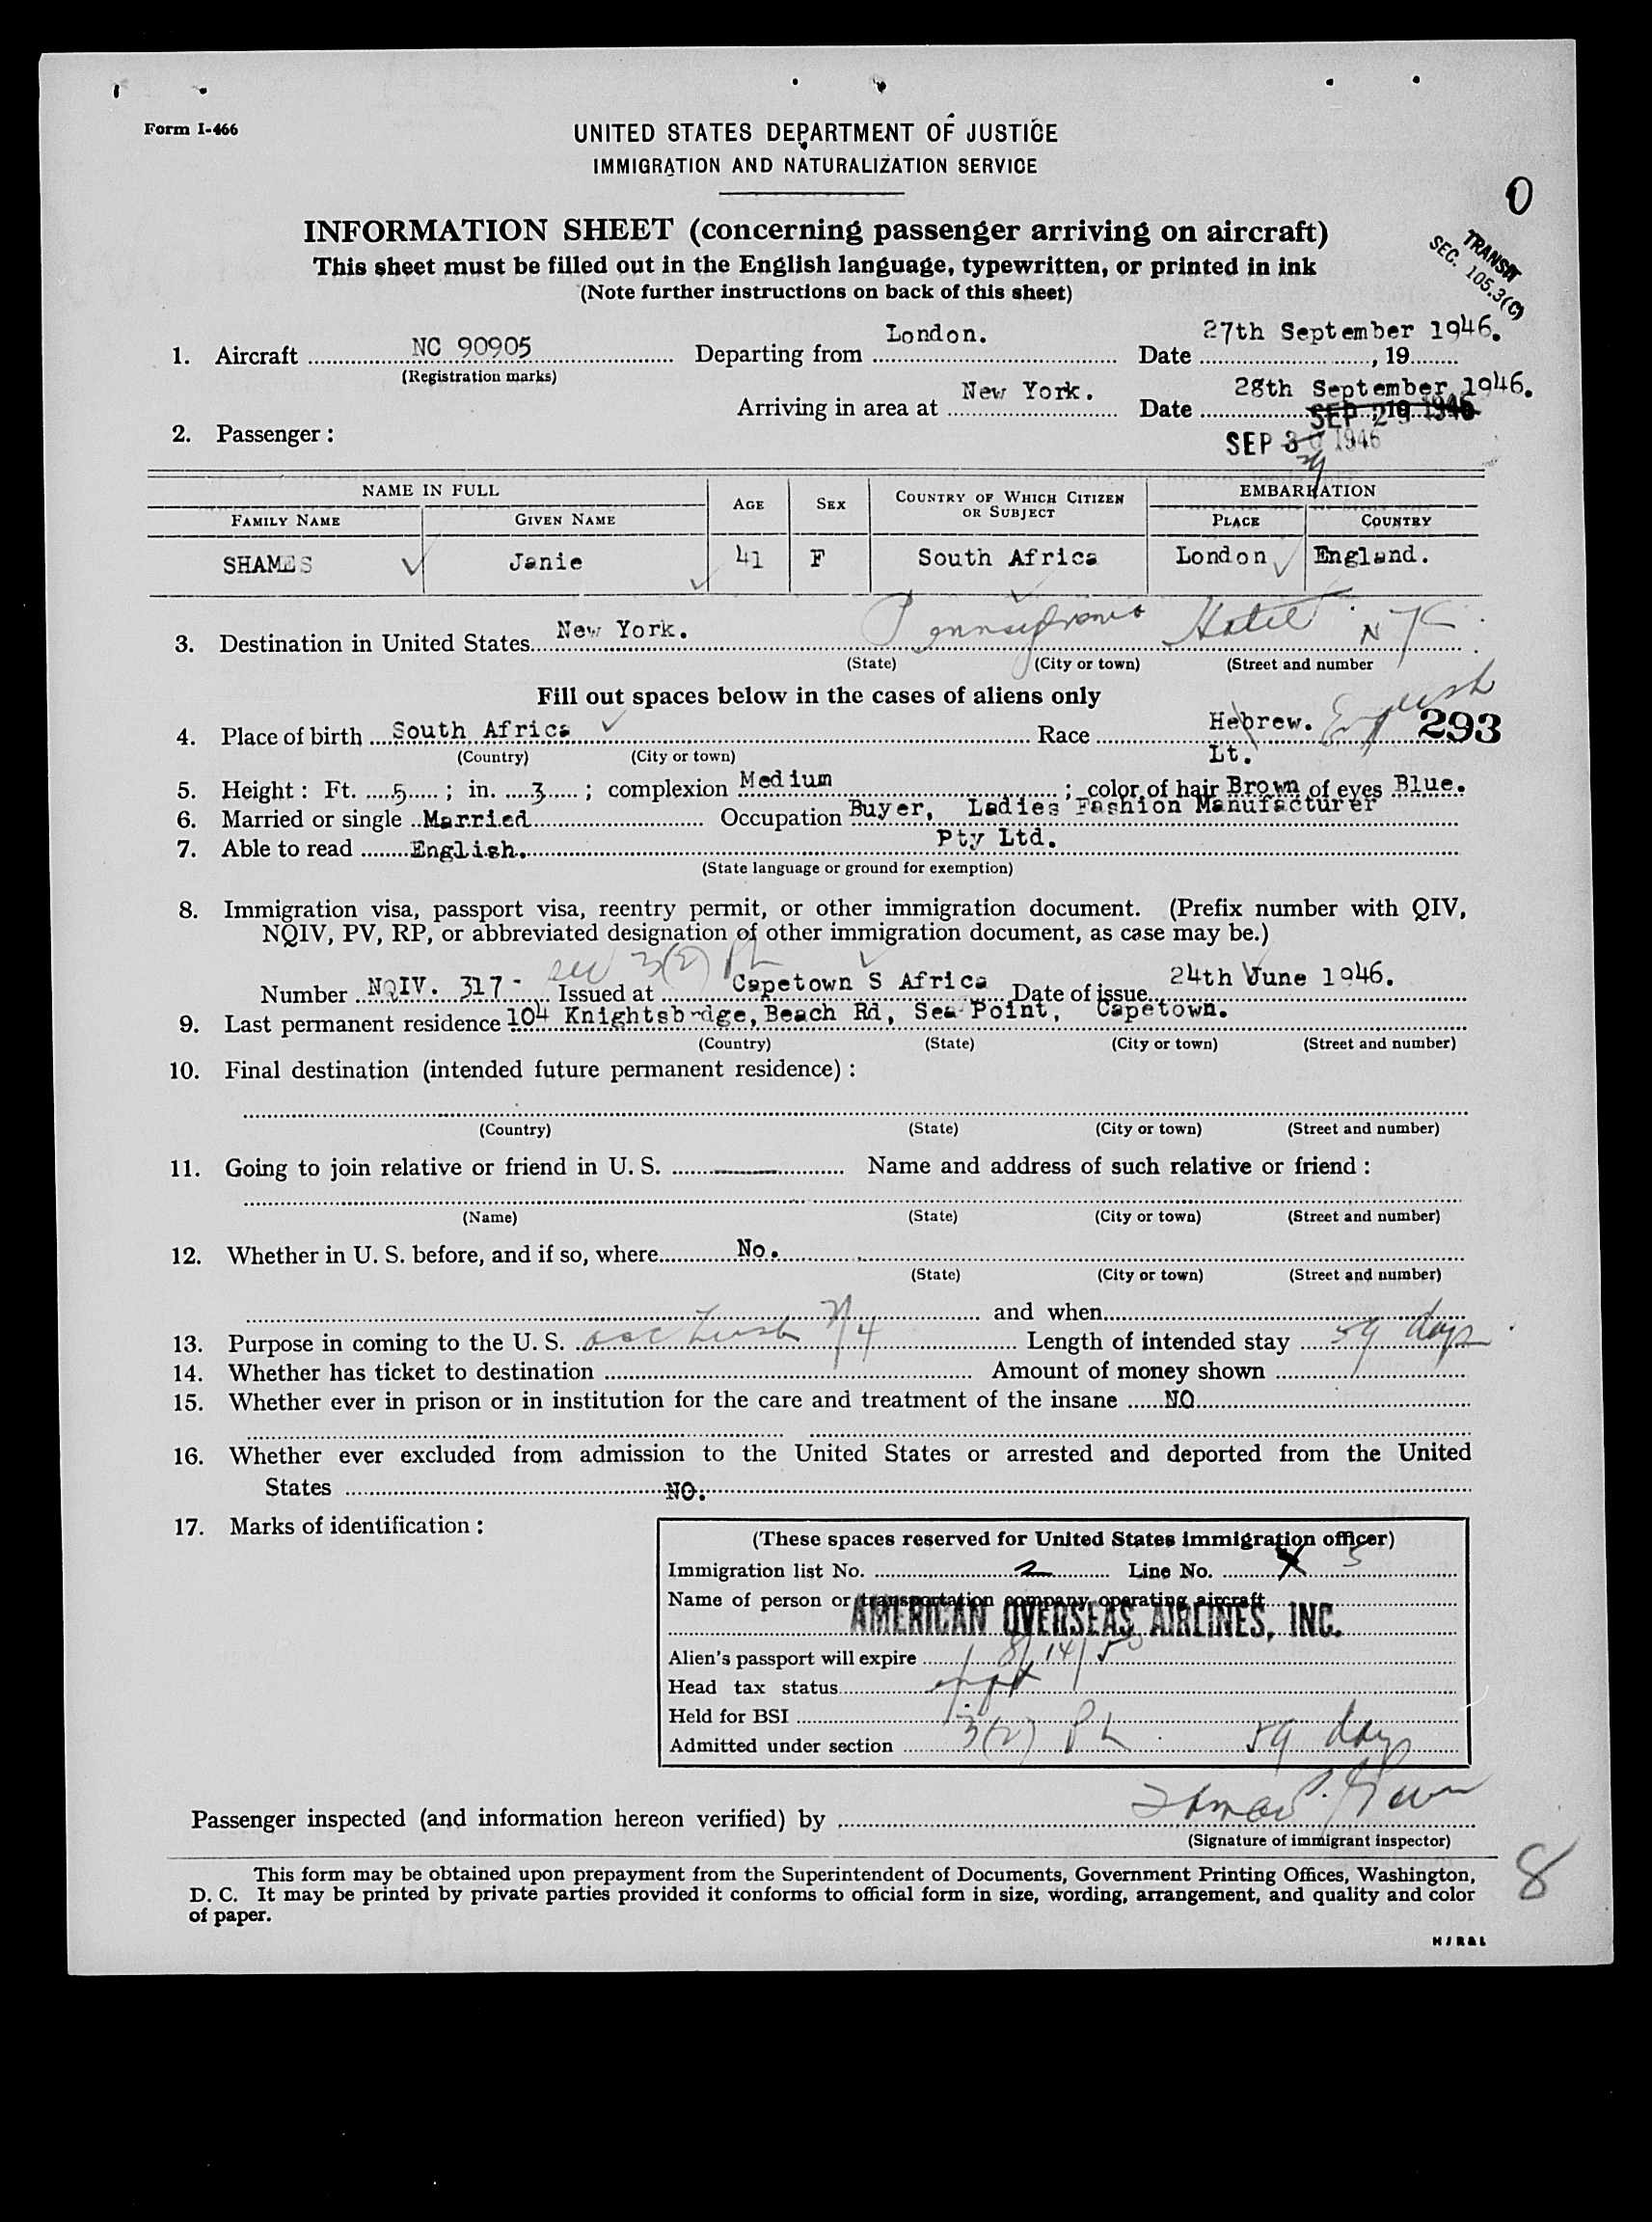 Form I-466
UNITED STATES DEPARTMENT OF JUSTICE
IMMIGRATION AND NATURALIZATION SERVICE
0
INFORMATION SHEET (concerning passenger arriving on aircraft)
TRANSIT
SEC. 105.3(C)
This sheet must be filled out in the English language, typewritten, or printed in ink
(Note further instructions on back of this sheet)
1. Aircraft NC 90905 Departing from London. Date 27th September 1946. , 19
(Registration marks)
Arriving in area at New York. Date 28th September 1946.
SEP 29 1946
2. Passenger :
SEP 30 1946
NAME IN FULL AGE SEX COUNTRY OF WHICH CITIZEN OR SUBJECT EMBARKATION
FAMILY NAME GIVEN NAME PLACE COUNTRY
SHAMES Janie 41 F South Africa London England.
3. Destination in United States New York. Pennsylvania Hotel N Y C
(State) (City or town) (Street and number
Fill out spaces below in the cases of aliens only
4. Place of birth South Africa Race Hebrew. English 293
(Country) (City or town) Lt.
5. Height : Ft. 5 ; in. 3 ; complexion Medium ; color of hair Brown of eyes Blue.
6. Married or single Married Occupation Buyer, Ladies Fashion Manufacturer
7. Able to read English. Pty Ltd.
(State language or ground for exemption)
8. Immigration visa, passport visa, reentry permit, or other immigration document. (Prefix number with QIV,
NQIV, PV, RP, or abbreviated designation of other immigration document, as case may be.)
sec 3(2) PL
Number NQIV. 317 - Issued at Capetown S Africa Date of issue 24th June 1946.
9. Last permanent residence 104 Knightsbrdge, Beach Rd, Sea Point, Capetown.
(Country) (State) (City or town) (Street and number)
10. Final destination (intended future permanent residence) :
(Country) (State) (City or town) (Street and number)
11. Going to join relative or friend in U. S. Name and address of such relative or friend :
(Name) (State) (City or town) (Street and number)
12. Whether in U. S. before, and if so, where No.
(State) (City or town) (Street and number)
and when
13. Purpose in coming to the U. S. Length of intended stay 59 days
14. Whether has ticket to destination Amount of money shown
15. Whether ever in prison or in institution for the care and treatment of the insane NO
16. Whether ever excluded from admission to the United States or arrested and deported from the United
States NO.
17. Marks of identification :
(These spaces reserved for United States immigration officer)
Immigration list No. 2 Line No. 5
Name of person or transportation company operating aircraft
AMERICAN OVERSEAS AIRLINES, INC.
Alien's passport will expire 8/14/50
Head tax status
Held for BSI
Admitted under section 3(2) PL 59 days
Passenger inspected (and information hereon verified) by
(Signature of immigrant inspector)
This form may be obtained upon prepayment from the Superintendent of Documents, Government Printing Offices, Washington,
D. C. It may be printed by private parties provided it conforms to official form in size, wording, arrangement, and quality and color
of paper.
8